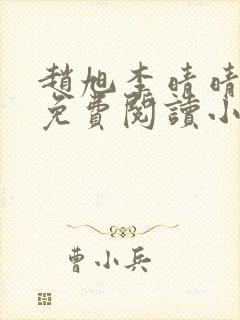 趙旭李晴晴
免費閱讀小
曹小兵